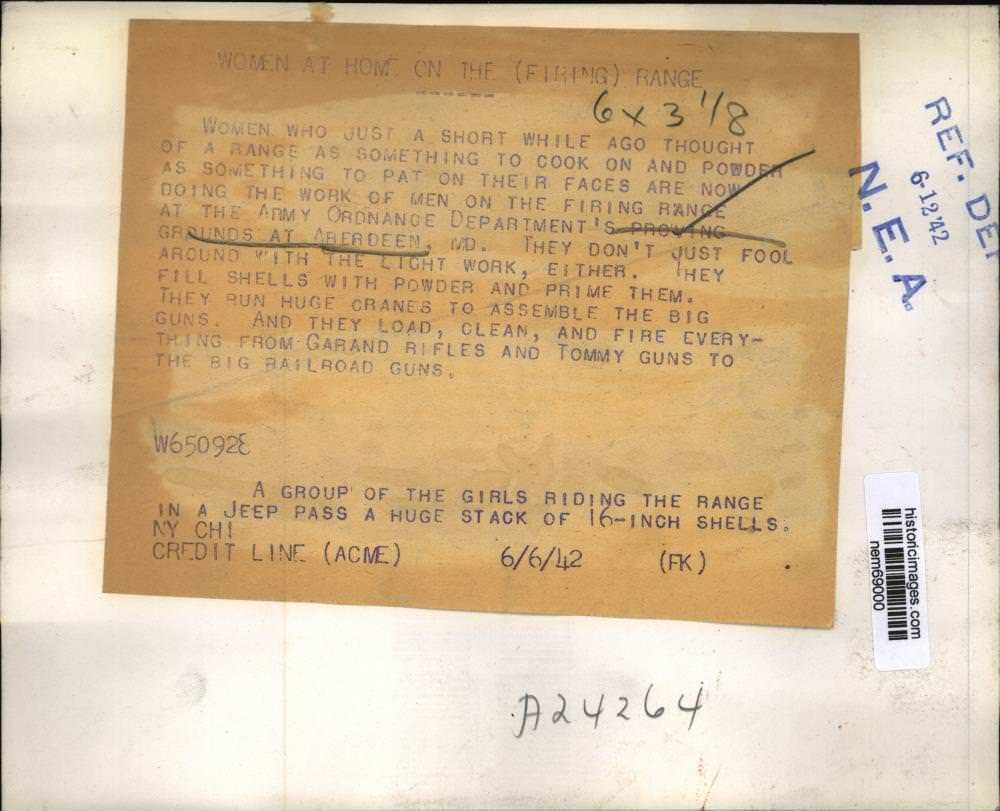 WOMEN AT HOME ON THE (FIRING) RANGE
6 x 3 1/8
WOMEN WHO JUST A SHORT WHILE AGO THOUGHT
OF A RANGE AS SOMETHING TO COOK ON AND POWDER
AS SOMETHING TO PAT ON THEIR FACES ARE NOW
DOING THE WORK OF MEN ON THE FIRING RANGE
AT THE ARMY ORDNANCE DEPARTMENT'S PROVING
GROUNDS AT ABERDEEN, MD. THEY DON'T JUST FOOL
AROUND WITH THE LIGHT WORK, EITHER. THEY
FILL SHELLS WITH POWDER AND PRIME THEM.
THEY RUN HUGE CRANES TO ASSEMBLE THE BIG
GUNS. AND THEY LOAD, CLEAN, AND FIRE EVERY-
THING FROM GARAND RIFLES AND TOMMY GUNS TO
THE BIG RAILROAD GUNS.
W650928
A GROUP OF THE GIRLS RIDING THE RANGE
IN A JEEP PASS A HUGE STACK OF 16-INCH SHELLS.
NY CHI
CREDIT LINE (ACME) 6/6/42 (FK)
REF. DEP
6-12'42
N. E. A.
historicimages.com
nem69000
A24264